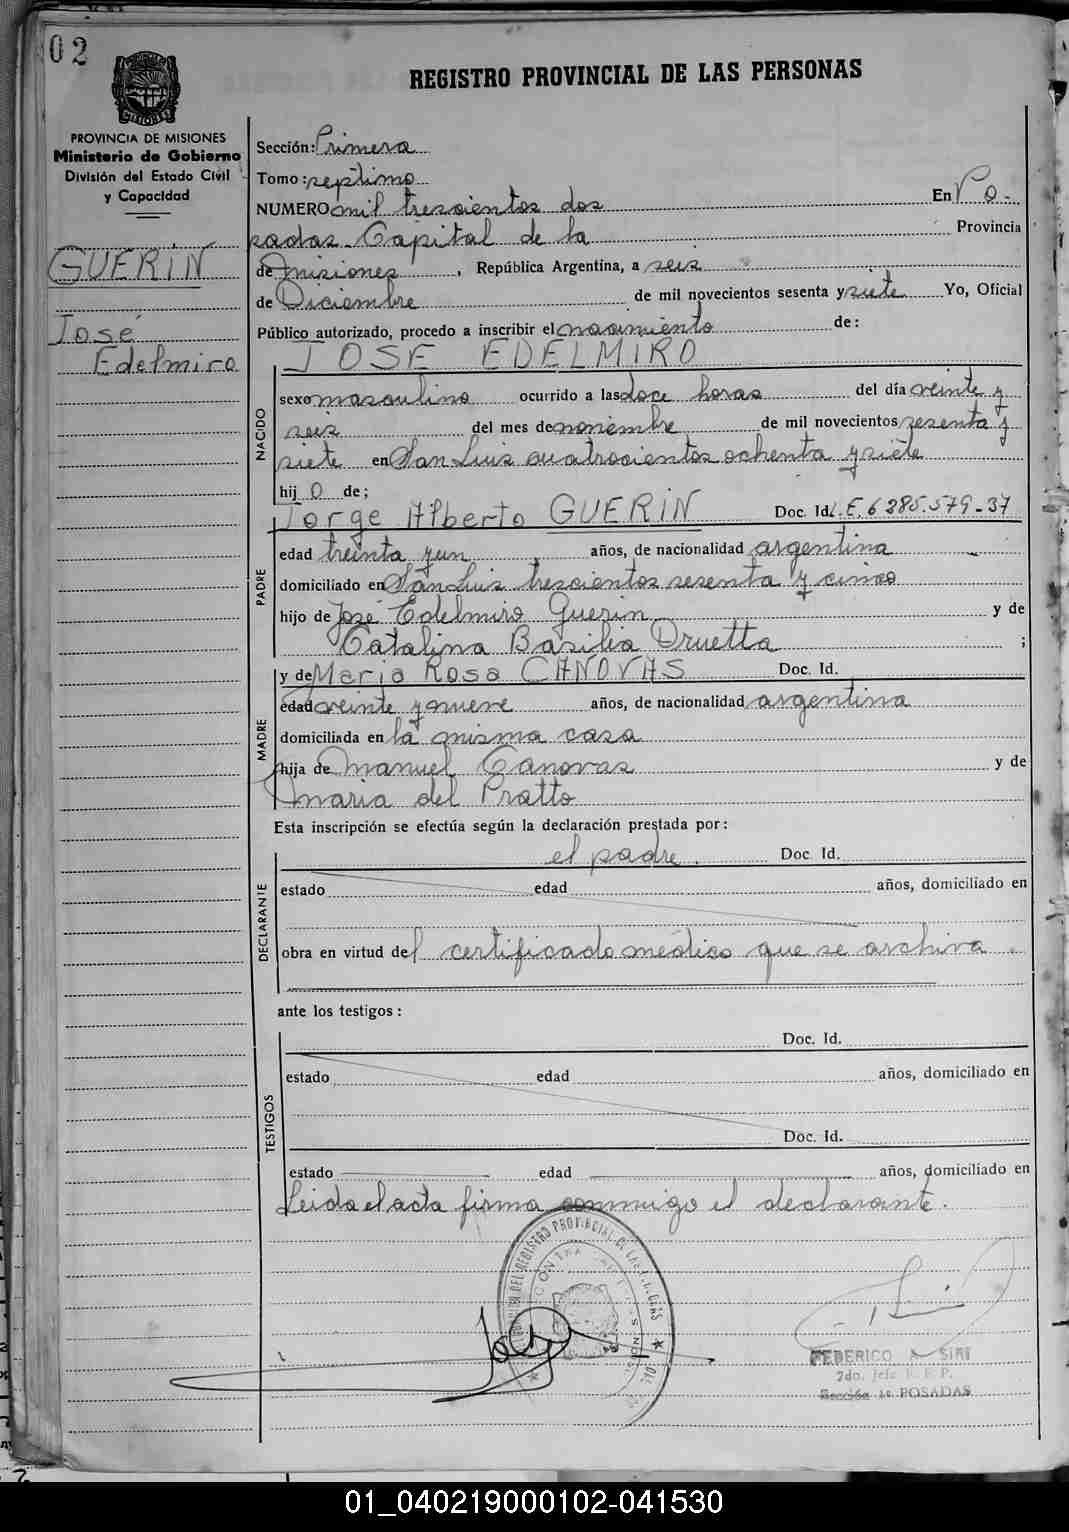 02
REGISTRO PROVINCIAL DE LAS PERSONAS
PROVINCIA DE MISIONES
Ministerio de Gobierno
División del Estado Civil
y Capacidad
GUERIN
José
Edelmiro
Sección: Primera
Tomo: septimo
NUMERO mil trescientos dos En Po-
sadas Capital de la Provincia
de Misiones, República Argentina, a seis
de Diciembre de mil novecientos sesenta y siete Yo, Oficial
Público autorizado, procedo a inscribir el nacimiento de:
JOSE EDELMIRO
NACIDO
sexo masculino ocurrido a las doce horas del día veinte y
seis del mes de noviembre de mil novecientos sesenta y
siete en San Luis cuatrocientos ochenta y siete
hijo de;
Jorge Alberto GUERIN Doc. Id. L.E. 6285.579-37
PADRE
edad treinta y un años, de nacionalidad argentina
domiciliado en San Luis trescientos sesenta y cinco
hijo de José Edelmiro Guerin y de
Catalina Basilia Druetta ;
y de Maria Rosa CANOVAS Doc. Id.
MADRE
edad veinte y nueve años, de nacionalidad argentina
domiciliada en la misma casa
hija de Manuel Canovas y de
Maria del Pratto
Esta inscripción se efectúa según la declaración prestada por:
el padre. Doc. Id.
DECLARANTE
estado edad años, domiciliado en
obra en virtud del certificado médico que se archiva.
ante los testigos:
Doc. Id.
TESTIGOS
estado edad años, domiciliado en
Doc. Id.
estado edad años, domiciliado en
Leida el acta firma conmigo el declarante.
FEDERICO A. SIRI
2do. Jefe R. P. P.
Sección 1º POSADAS
01_040219000102-041530